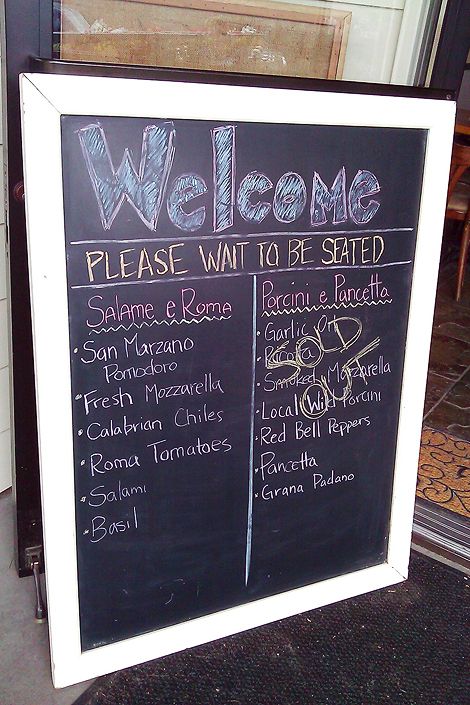 Welcome
PLEASE WAIT TO BE SEATED
Salame e Roma
San Marzano
Pomodoro
Fresh Mozzarella
Calabrian Chiles
Roma Tomatoes
Salami
Basil
Porcini e Pancetta
Garlic Oil
Ricotta
Smoked Mozzarella
Local Wild Porcini
Red Bell Peppers
Pancetta
Grana Padano
SOLD
OUT